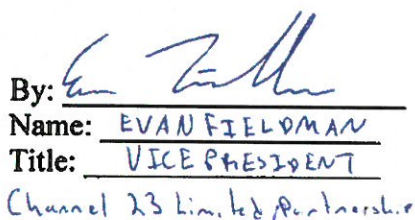 By:
Name: EVAN FIELDMAN
Title: VICE PRESIDENT
Channel 23 Limited Partnership